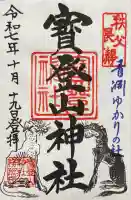 秩父
長瀞
青淵ゆかりの社
寶登山神社
令和七年十月十九日登拝